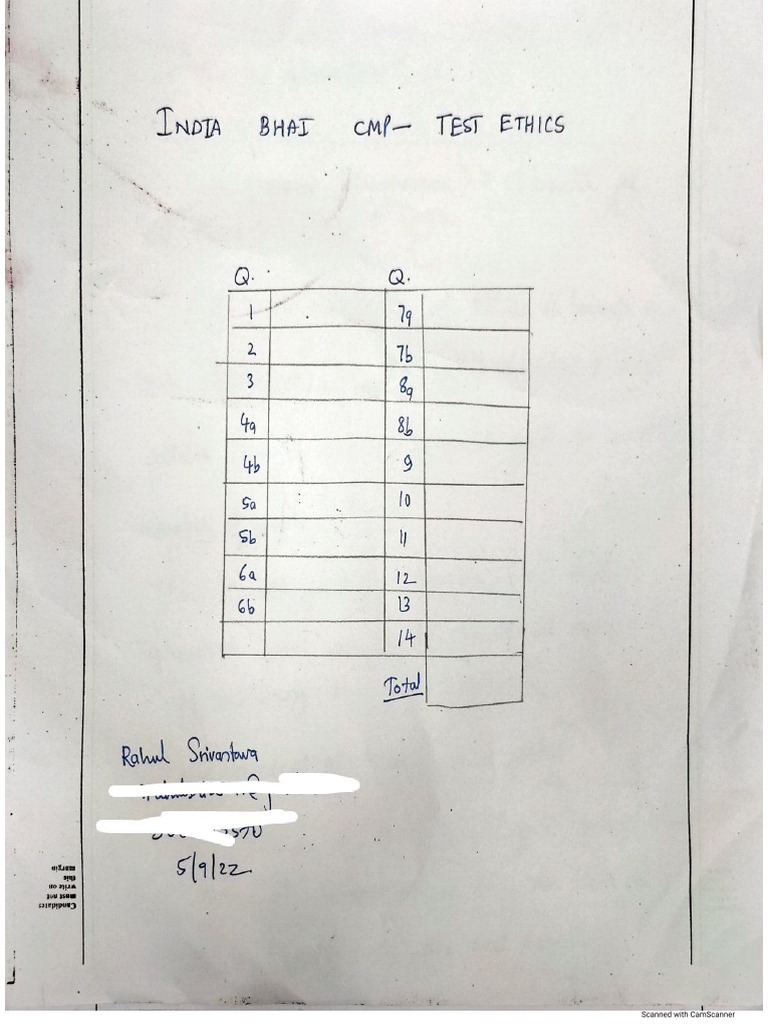 INDIA BHAI CMP- TEST ETHICS
Q. Q.
1 7a
2 7b
3 8a
4a 8b
4b 9
5a 10
5b 11
6a 12
6b 13
14
Total
Rahul Srivastava
5/9/22
Candidates
must not
write on
this
margin
Scanned with CamScanner